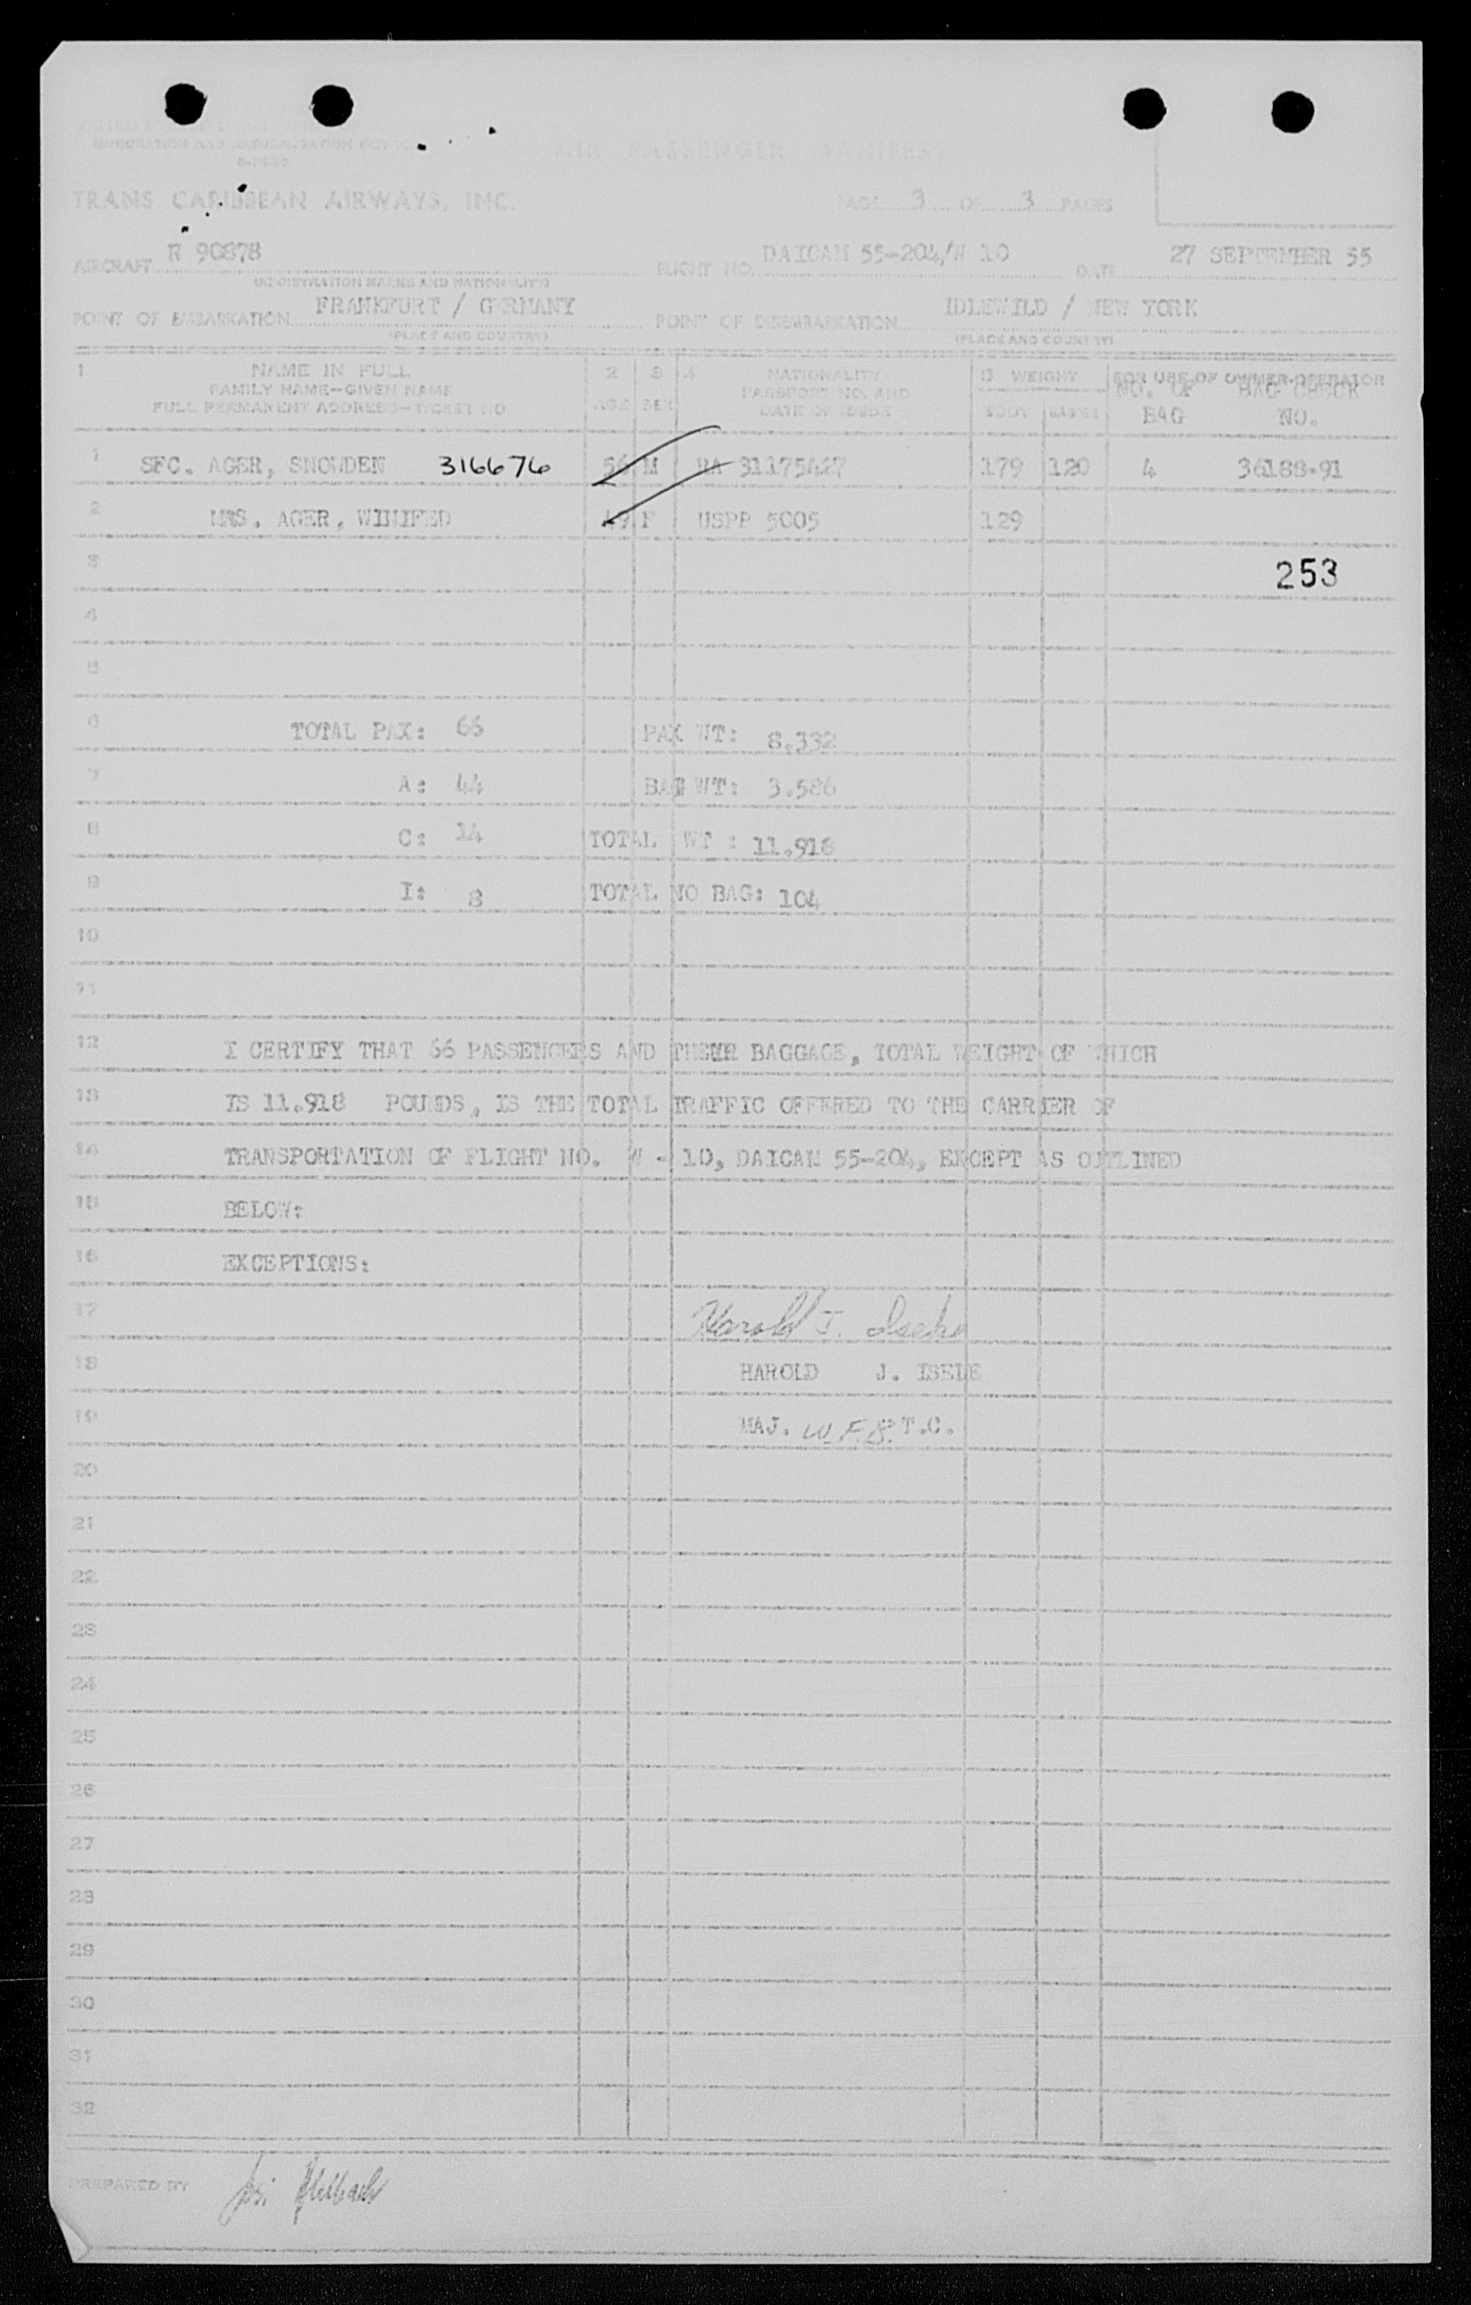 IMMIGRATION AND NATURALIZATION SERVICE
AIR PASSENGER MANIFEST
TRANS CARIBBEAN AIRWAYS, INC.
PAGE 3 OF 3 PAGES
AIRCRAFT N 90878 FLIGHT NO. DAICAM 55-204/W 10 DATE 27 SEPTEMBER 55
(REGISTRATION MARKS AND NATIONALITY)
POINT OF EMBARKATION FRANKFURT / GERMANY POINT OF DISEMBARKATION IDLEWILD / NEW YORK
(PLACE AND COUNTRY) (PLACE AND COUNTRY)
1 NAME IN FULL 2 3 4 NATIONALITY WEIGHT FOR USE OF OWNER-OPERATOR
FAMILY NAME—GIVEN NAME PASSPORT NO. AND NO. OF BAG CHECK
FULL PERMANENT ADDRESS—TICKET NO AGE SEX DATE OF ISSUE BODY BAG'GE BAG NO.
1 SFC. AGER, SNOWDEN 316676 56 M RA 31175427 179 120 4 36188-91
2 MRS. AGER, WINIFED 49 F USPP 5005 129
3 253
4
5
6 TOTAL PAX: 66 PAX WT: 8.332
7 A: 44 BAG WT: 3.586
8 C: 14 TOTAL WT : 11.918
9 I: 8 TOTAL NO BAG: 104
10
11
12 I CERTIFY THAT 66 PASSENGERS AND THEIR BAGGAGE, TOTAL WEIGHT OF WHICH
13 IS 11.918 POUNDS, IS THE TOTAL TRAFFIC OFFERED TO THE CARRIER OF
14 TRANSPORTATION OF FLIGHT NO. W - 10, DAICAM 55-204, EXCEPT AS OUTLINED
15 BELOW:
16 EXCEPTIONS:
17 Harold J. Isele
18 HAROLD J. ISELE
19 MAJ. W.F.B. T.C.
20
21
22
23
24
25
26
27
28
29
30
31
32
PREPARED BY